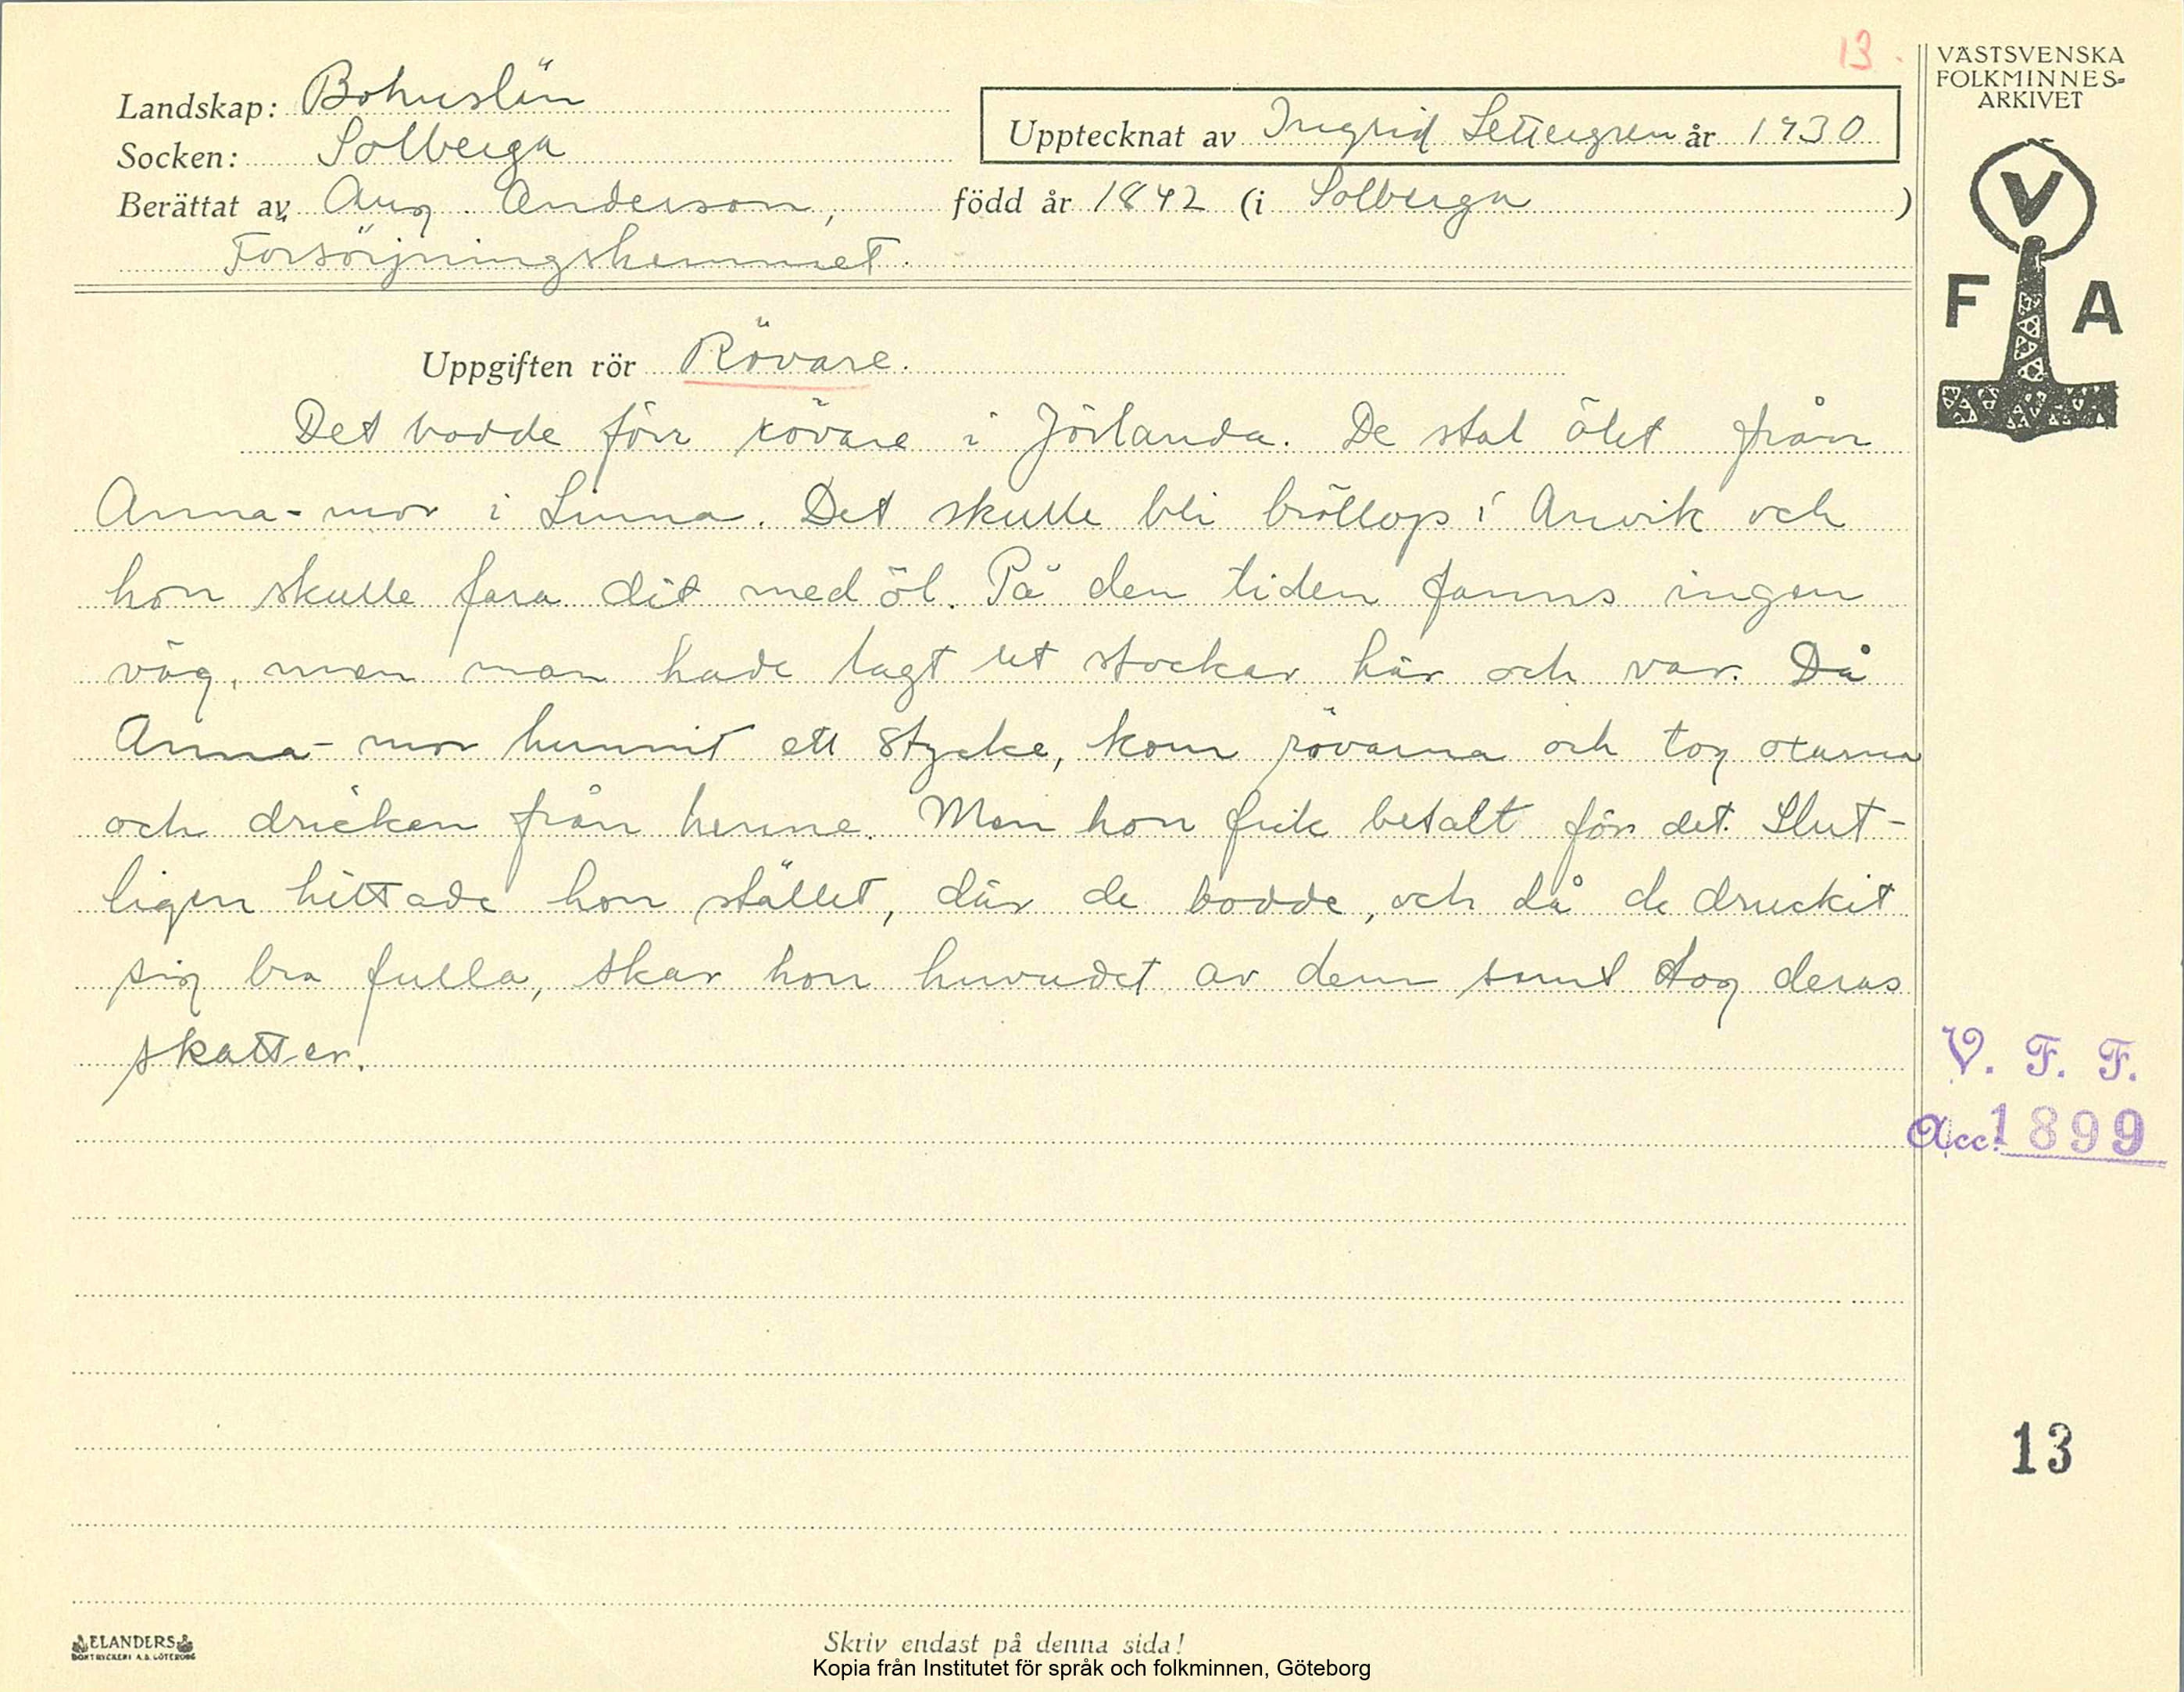 13.
VÄSTSVENSKA
FOLKMINNES-
ARKIVET
Landskap: Bohuslän
Upptecknat av Ingrid Settergren år 1930
Socken: Solberga
Berättat av Aug. Anderson, född år 1842 (i Solberga)
Försörjningshemmet.
V
F A
Uppgiften rör Rövare.
Det bodde förr rövare i Jörlanda. De stal ölet från
Anna-mor i Linna. Det skulle bli bröllop i Anvik och
hon skulle fara dit med öl. På den tiden fanns ingen
väg, men man hade lagt ut stockar här och var. Då
Anna-mor hunnit ett stycke, kom rövarna och tog oxarna
och dricken från henne. Men hon fick betalt för det. Slut-
ligen hittade hon stället, där de bodde, och då de druckit
sig bra fulla, skar hon huvudet av dem samt tog deras
skatter.
V. F. F.
Acc. 1899
13
ELANDERS
BOKTRYCKERI A.B. GÖTEBORG
Skriv endast på denna sida!
Kopia från Institutet för språk och folkminnen, Göteborg